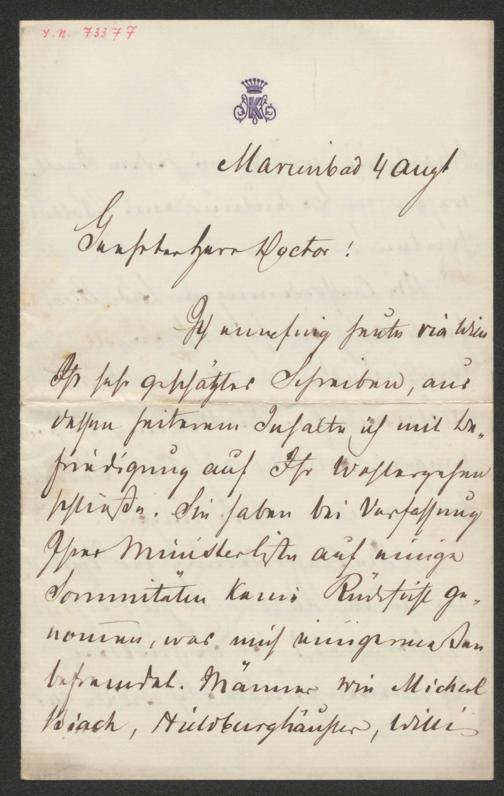 I.N. 73377
K
Marienbad 4 Augt
Geehrter Herr Doctor!
Ich empfing heute via Wien
Ihr sehr geschätztes Schreiben, aus
dessen heiterem Inhalte ich mit Be-
friedigung auf Ihr Wohlergehen
schließe. Sie haben bei Verfassung
Ihrer Ministerliste auf einige
Sommitäten keine Rücksicht ge-
nommen, was mich einigermaßen
befremdet. Männer wie Michael
Biach, Hildburghäußer, Willi-